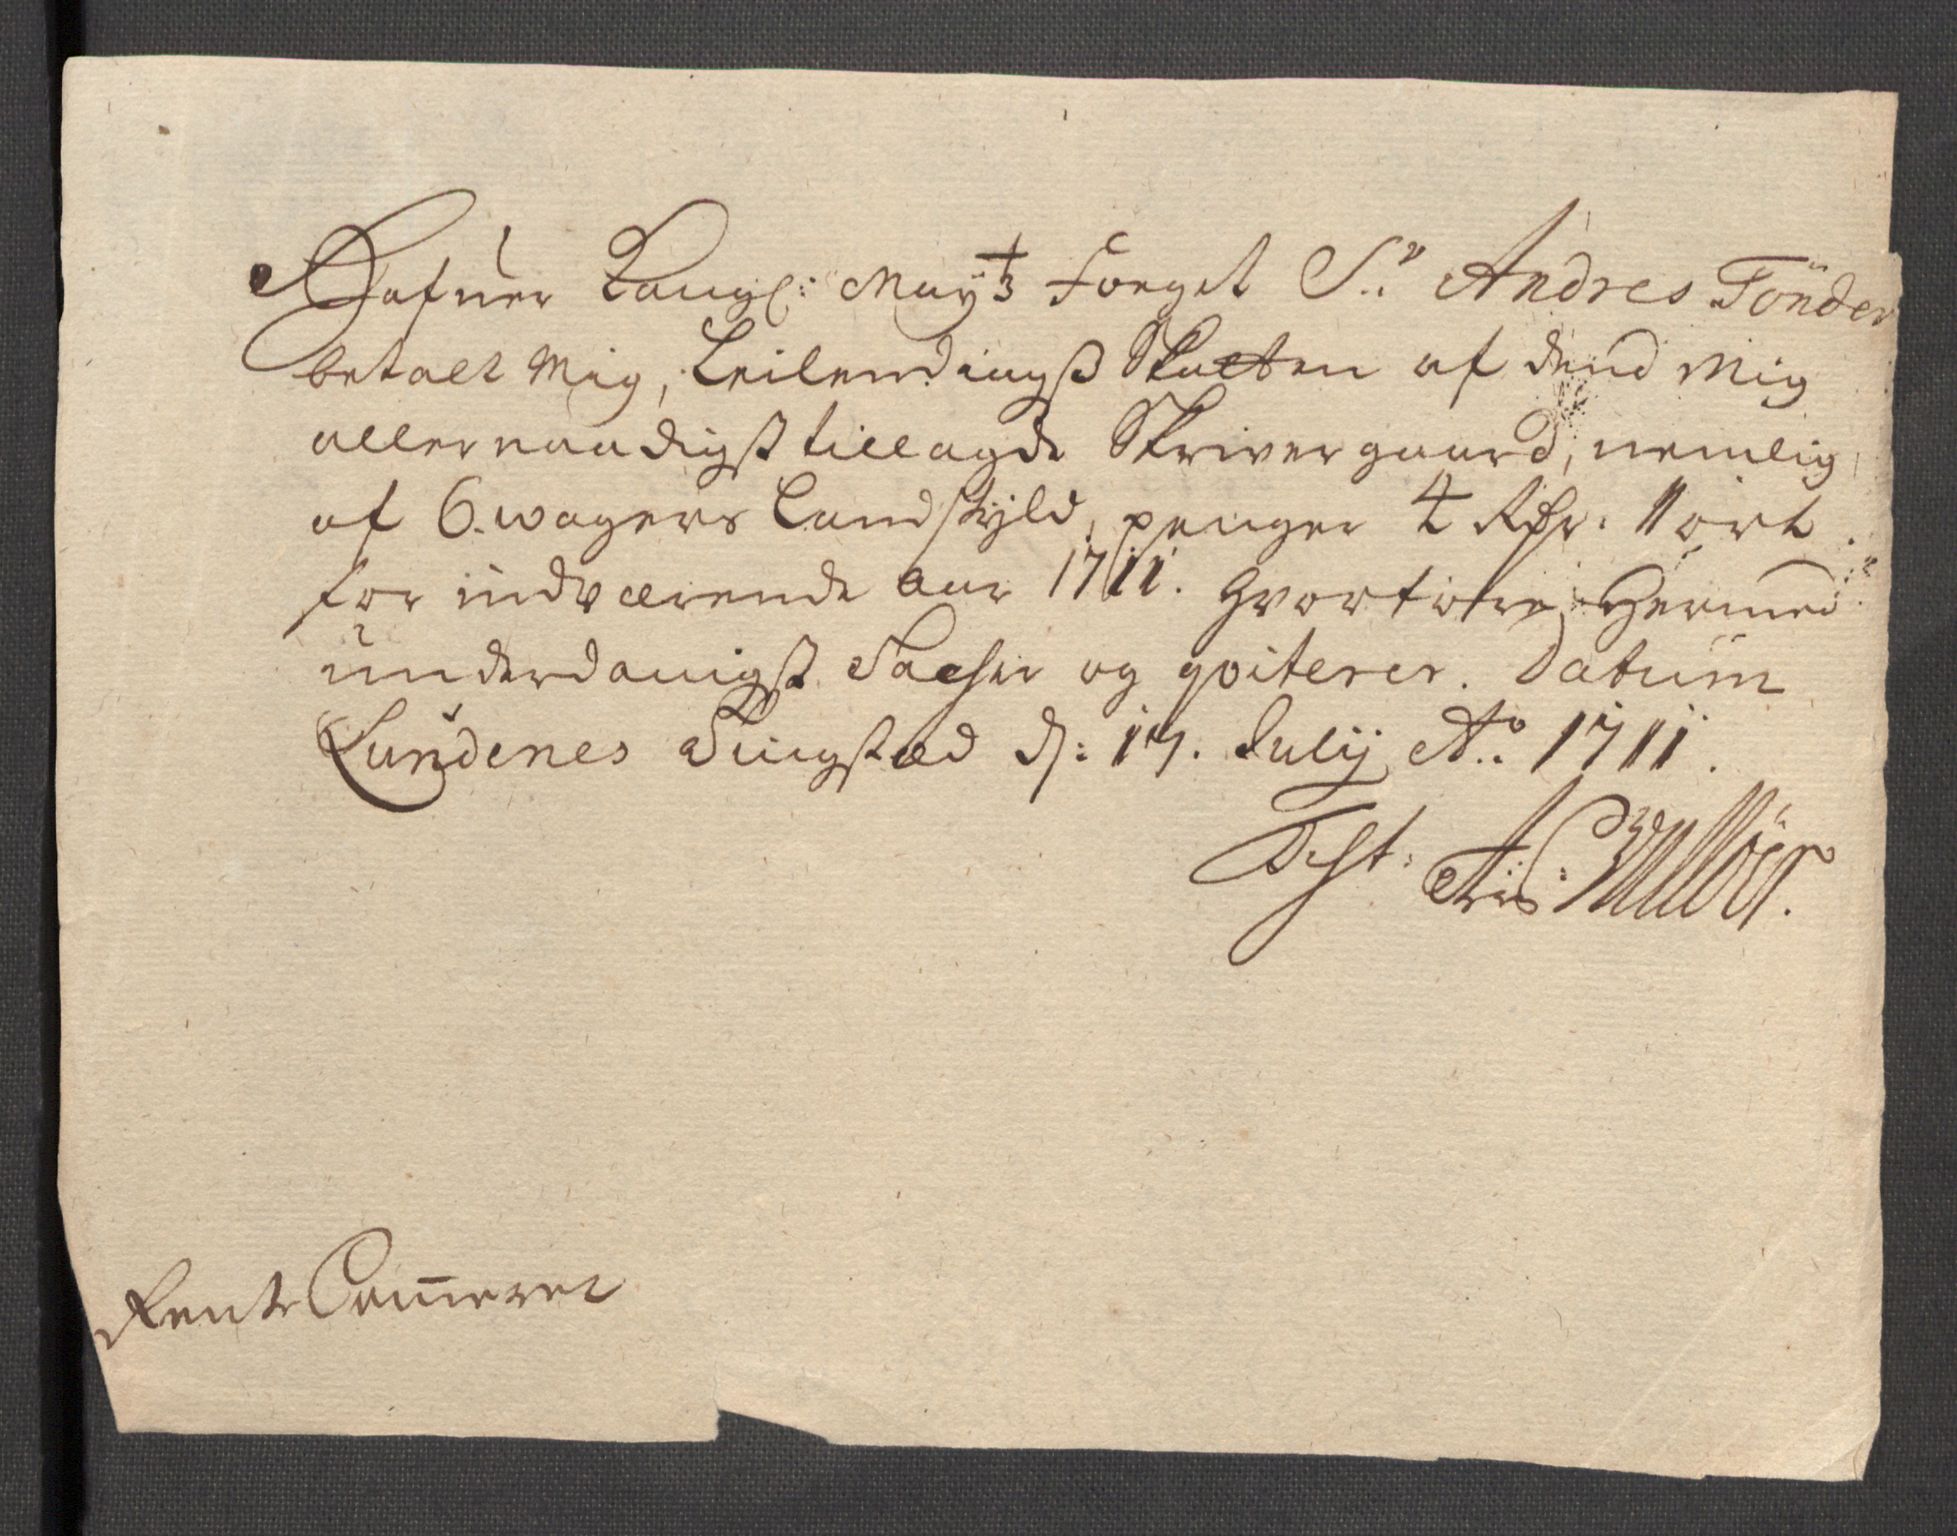 Hafuer Kongl: May:tz Foeget Sr. Andres Tönder
betalt Mig, Leilendingsß Skatten af dend Mig
allernaadigst tillagde Skrivergaard, nemlig
af 6. wogers Landskÿld, penger 4 Rdr. 11 ort.
for indværende Aar 1711. Hvorfore hermed
ünderdanigst Tacher og qviterer. Datum
Lundenes Tingsted d: 17. Julij Ao. 1711.
RenteCammeret